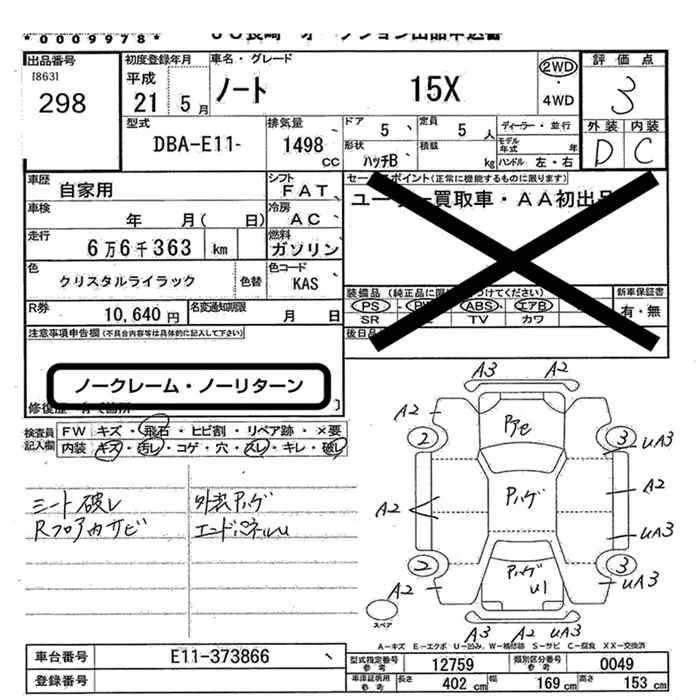 *0009978* ＪＵ長崎 オークション出品申込書
出品番号
[863]
298
初度登録年月
平成
21 5 月
車名・グレード
ノート 15X
2WD
・
4WD
評価点
3
外装 内装
D C
型式
DBA-E11-
排気量
1498
CC
ドア 5 定員 5 人
ディーラー・並行
モデル年式 年
形状 ハッチB 積載 kg
ハンドル 左・右
車歴 自家用
シフト FAT
車検 年 月( 日)
冷房 AC
走行 6万6千363 km
燃料 ガソリン
色 クリスタルライラック 色替
色コード KAS
R券 10,640 円
名変通知期限 月 日
セールスポイント(正常に機能するものに限ります)
ユーザー買取車・AA初出品
装備品 (純正品に限 つけてください)
PS・PW・ABS・エアB
SR TV カワ
新車保証書
有・無
後日品
注意事項申告欄 (不具合内容等は具体的に記入して下さい)
ノークレーム・ノーリターン
修復歴
検査員記入欄
FW キズ・飛石・ヒビ割・リペア跡・×要
内装 キズ・汚レ・コゲ・穴・スレ・キレ・破レ
シート破レ 外装アハゲ
Rフロア内サビ エンドパネルU
A3 A2
A2 アハゲ
2 3 UA3
A2 アハゲ A2
UA3
2 3
A2 アハゲ U1 UA3
スペア
A3 A2 UA3
A-キズ E-エクボ U-凹み、W-補修跡 S-サビ C-腐食 XX-交換済
車台番号 E11-373866
登録番号
型式指定番号 参考 12759 類別区分番号 参考 0049
車庫証明用 参考 長さ 402 cm 幅 169 cm 高さ 153 cm